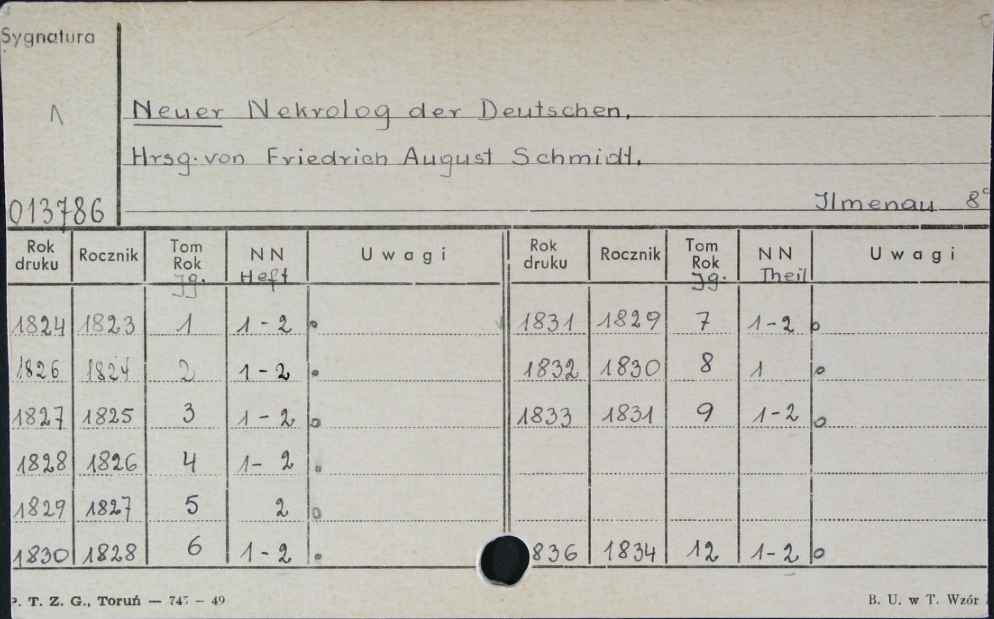 Sygnatura
Neuer Nekrolog der Deutschen.
Hrsg. von Friedrich August Schmidt.
013786
Ilmenau 8°
Rok druku Rocznik Tom Rok Jg. NN Heft Uwagi
1824 1823 1 1-2 o
1826 1824 2 1-2 o
1827 1825 3 1-2 o
1828 1826 4 1-2 o
1829 1827 5 2 o
1830 1828 6 1-2 o
Rok druku Rocznik Tom Rok Jg. NN Theil Uwagi
1831 1829 7 1-2 o
1832 1830 8 1 o
1833 1831 9 1-2 o
836 1834 12 1-2 o
. T. Z. G., Toruń — 747 — 49
B. U. w T. Wzór